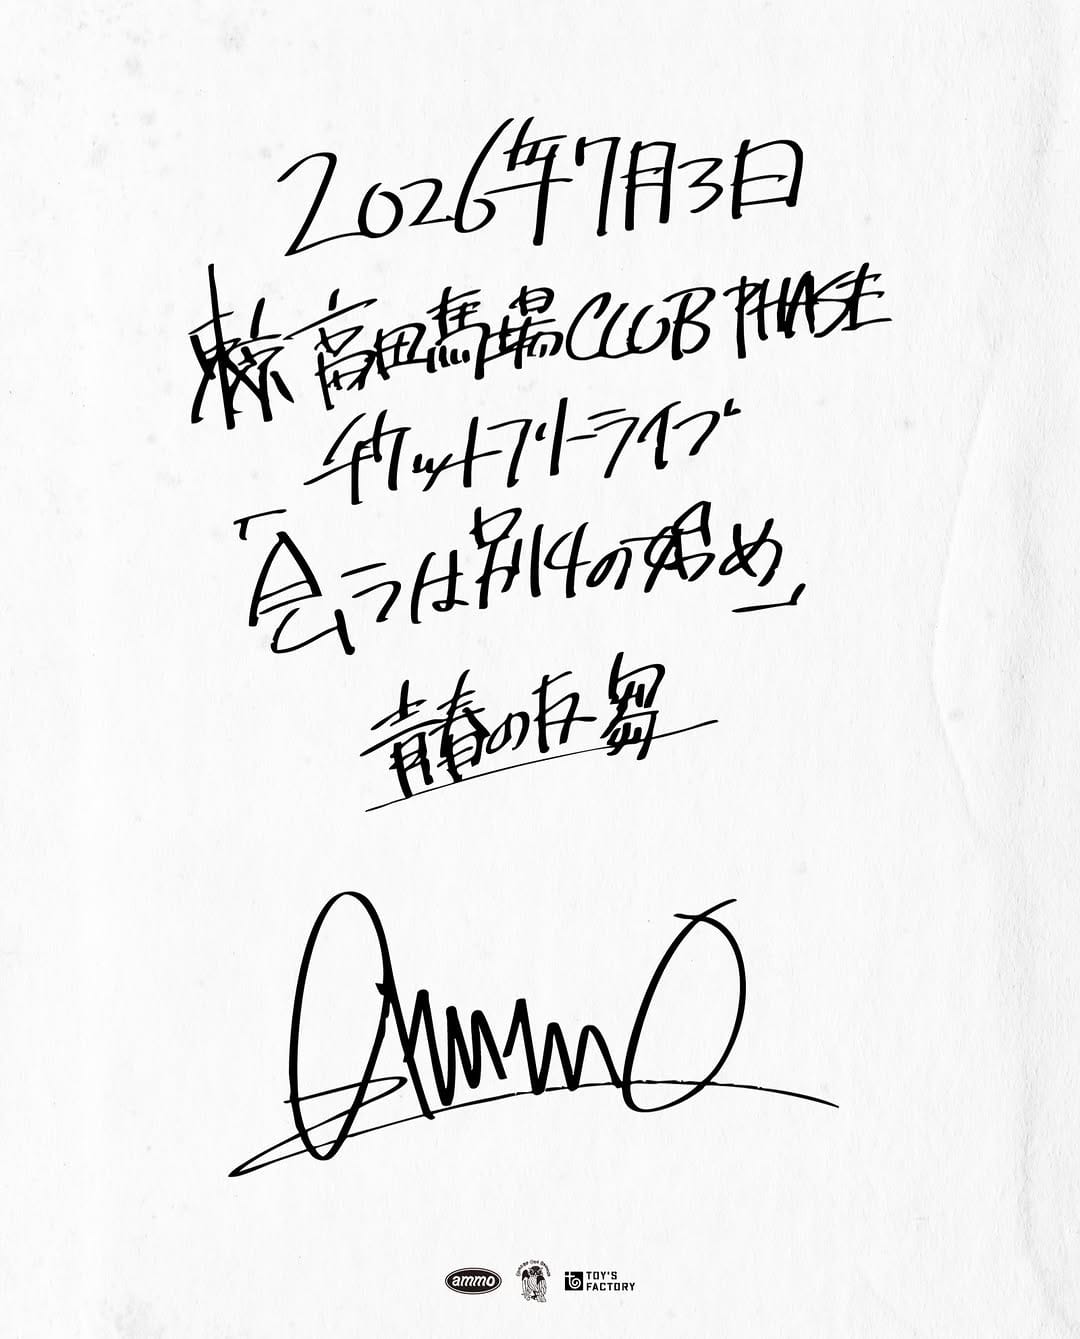 2026年7月3日
東京 高田馬場CLUB PHASE
チケットフリーライブ
「会うは別れの始め」
青春の反芻
ammo
ammo
TOY'S
FACTORY